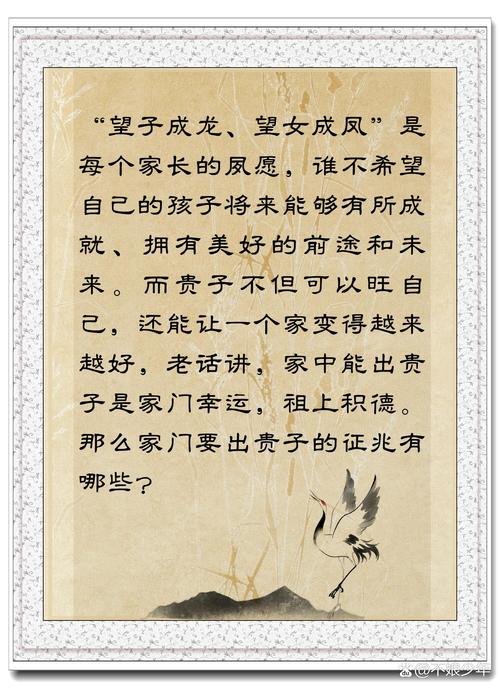 “望子成龙、望女成凤”是
每个家长的夙愿，谁不希望
自己的孩子将来能够有所成
就、拥有美好的前途和未
来。而贵子不但可以旺自
己，还能让一个家变得越来
越好，老话讲，家中能出贵
子是家门幸运，祖上积德。
那么家门要出贵子的征兆有
哪些？
@不娘少年